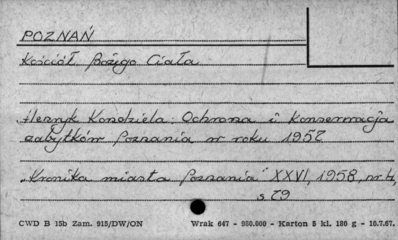 POZNAŃ
Kościół Bożego Ciała
Henryk Kondziela: Ochrona i konserwacja
zabytków Poznania w roku 1957
„Kronika miasta Poznania" XXVI, 1958, nr 4,
s. 79
CWD B 15b Zam. 915/DW/ON Wrak 647 - 980.000 - Karton 5 kl. 180 g - 10.7.67.